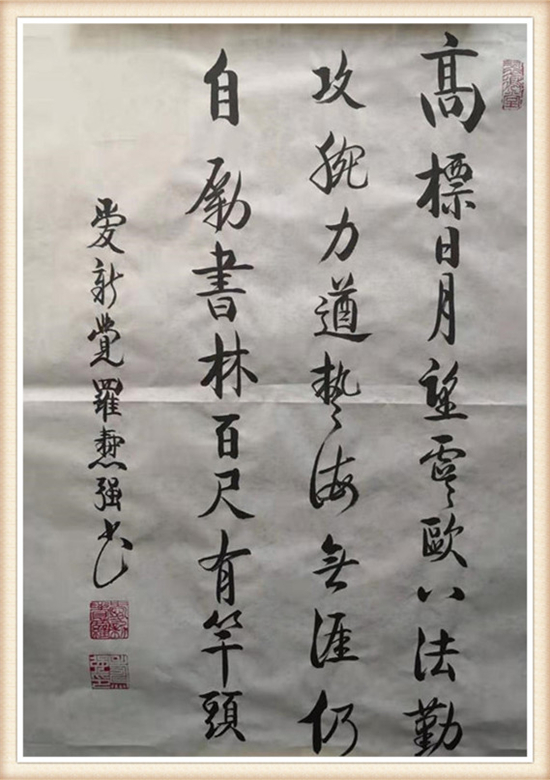 高標日月望虞歐八法勤
攻腕力遒藝海無涯仍
自勵書林百尺有竿頭
愛新覺羅强书